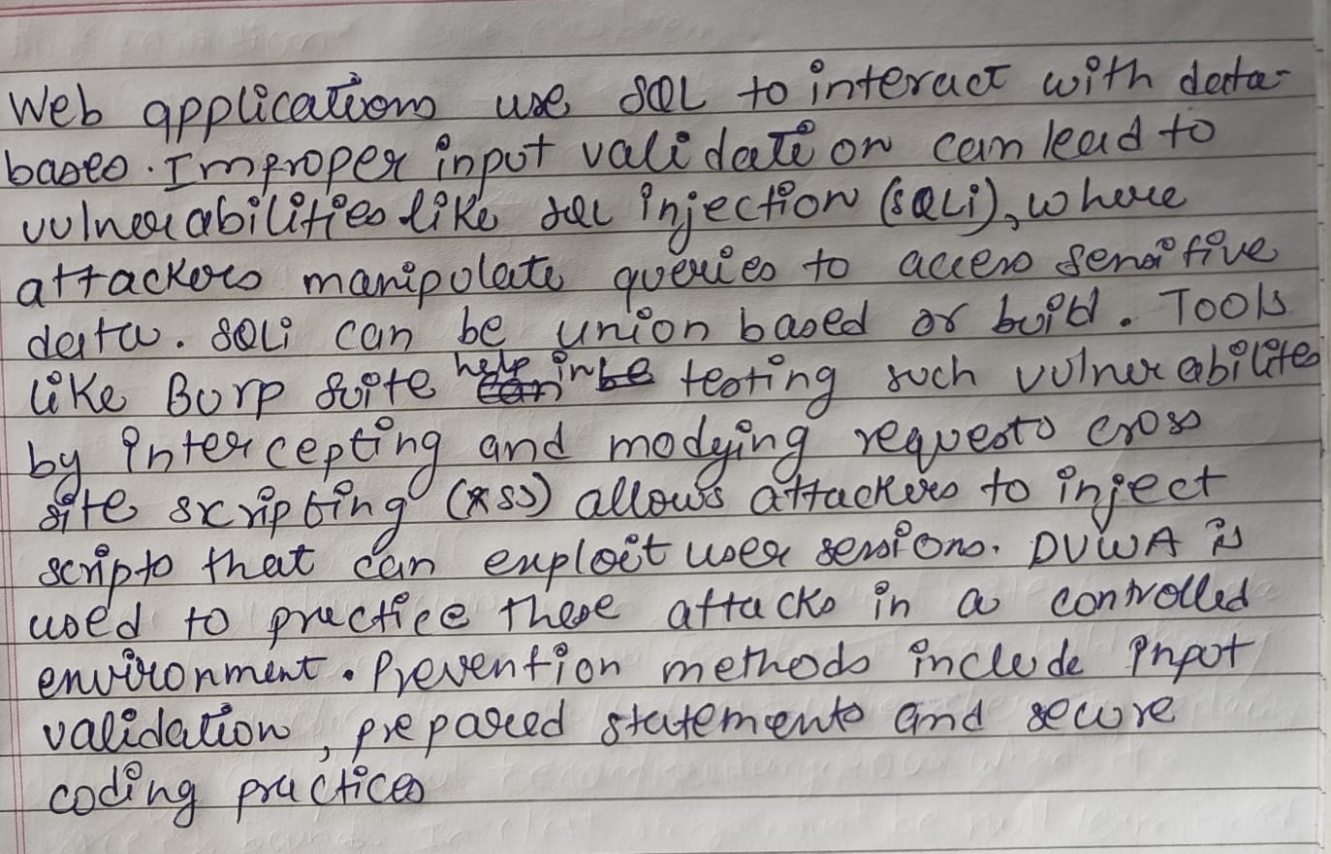 Web applications use SQL to interact with data-
bases. Improper input validation can lead to
vulnerabilities like SQL injection (SQLi), where
attackers manipulate queries to access sensitive
data. SQLi can be union based or buid. Tools
like Burp Suite help in testing such vulnerabilites
by intercepting and modying requests cross
site scripting (XSS) allows attackers to inject
scripts that can exploit user sessions. DVWA is
used to practice these attacks in a controlled
environment. Prevention methods include input
validation, prepared statements and secure
coding practices